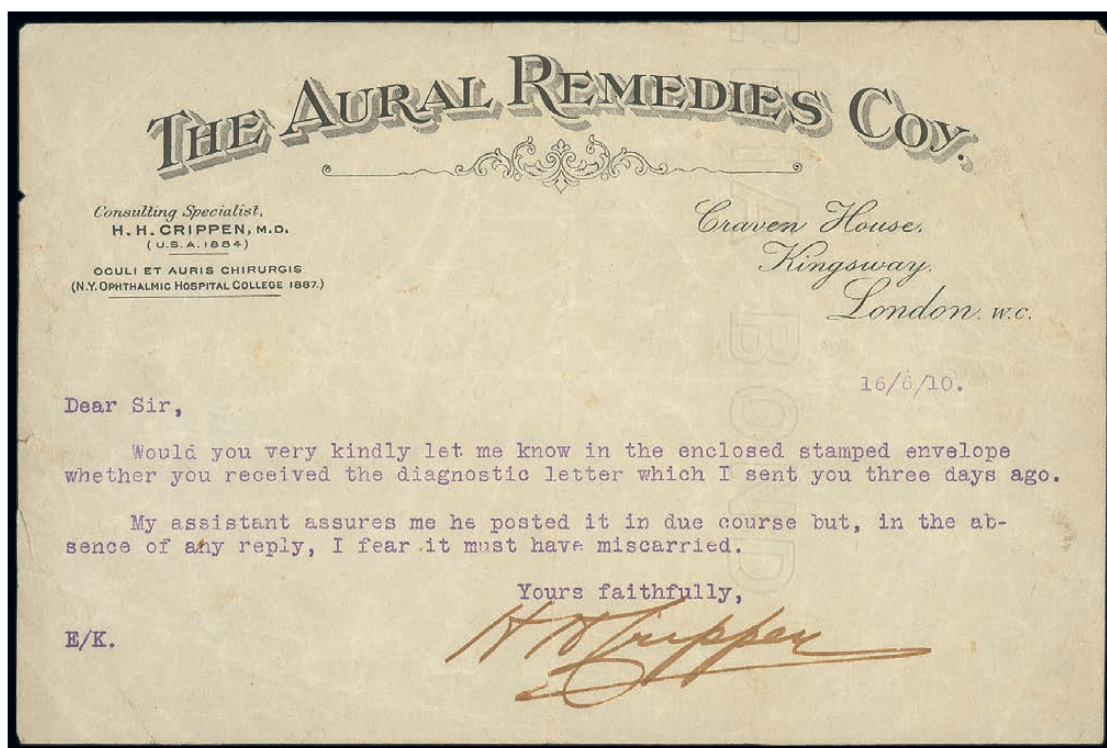 THE AURAL REMEDIES COY.
Consulting Specialist,
H. H. CRIPPEN, M.D.
(U.S.A. 1884)
OCULI ET AURIS CHIRURGIS
(N.Y. OPHTHALMIC HOSPITAL COLLEGE 1887.)
Craven House,
Kingsway,
London. W.C.
16/6/10.
Dear Sir,
Would you very kindly let me know in the enclosed stamped envelope
whether you received the diagnostic letter which I sent you three days ago.
My assistant assures me he posted it in due course but, in the ab-
sence of any reply, I fear it must have miscarried.
Yours faithfully,
H H Crippen
E/K.
BOND